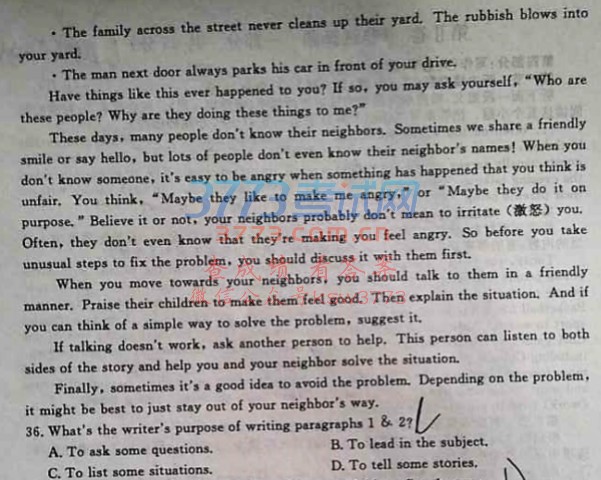 · The family across the street never cleans up their yard. The rubbish blows into
your yard.
· The man next door always parks his car in front of your drive.
Have things like this ever happened to you? If so, you may ask yourself, “Who are
these people? Why are they doing these things to me?”
These days, many people don't know their neighbors. Sometimes we share a friendly
smile or say hello, but lots of people don't even know their neighbor's names! When you
don't know someone, it's easy to be angry when something has happened that you think is
unfair. You think, “Maybe they like to make me angry,” or “Maybe they do it on
purpose.” Believe it or not, your neighbors probably don't mean to irritate (激怒) you.
Often, they don't even know that they're making you feel angry. So before you take
unusual steps to fix the problem, you should discuss it with them first.
When you move towards your neighbors, you should talk to them in a friendly
manner. Praise their children to make them feel good. Then explain the situation. And if
you can think of a simple way to solve the problem, suggest it.
If talking doesn't work, ask another person to help. This person can listen to both
sides of the story and help you and your neighbor solve the situation.
Finally, sometimes it's a good idea to avoid the problem. Depending on the problem,
it might be best to just stay out of your neighbor's way.
36. What's the writer's purpose of writing paragraphs 1 & 2?
A. To ask some questions. B. To lead in the subject.
C. To list some situations. D. To tell some stories.
3773考试网
3773.com.cn